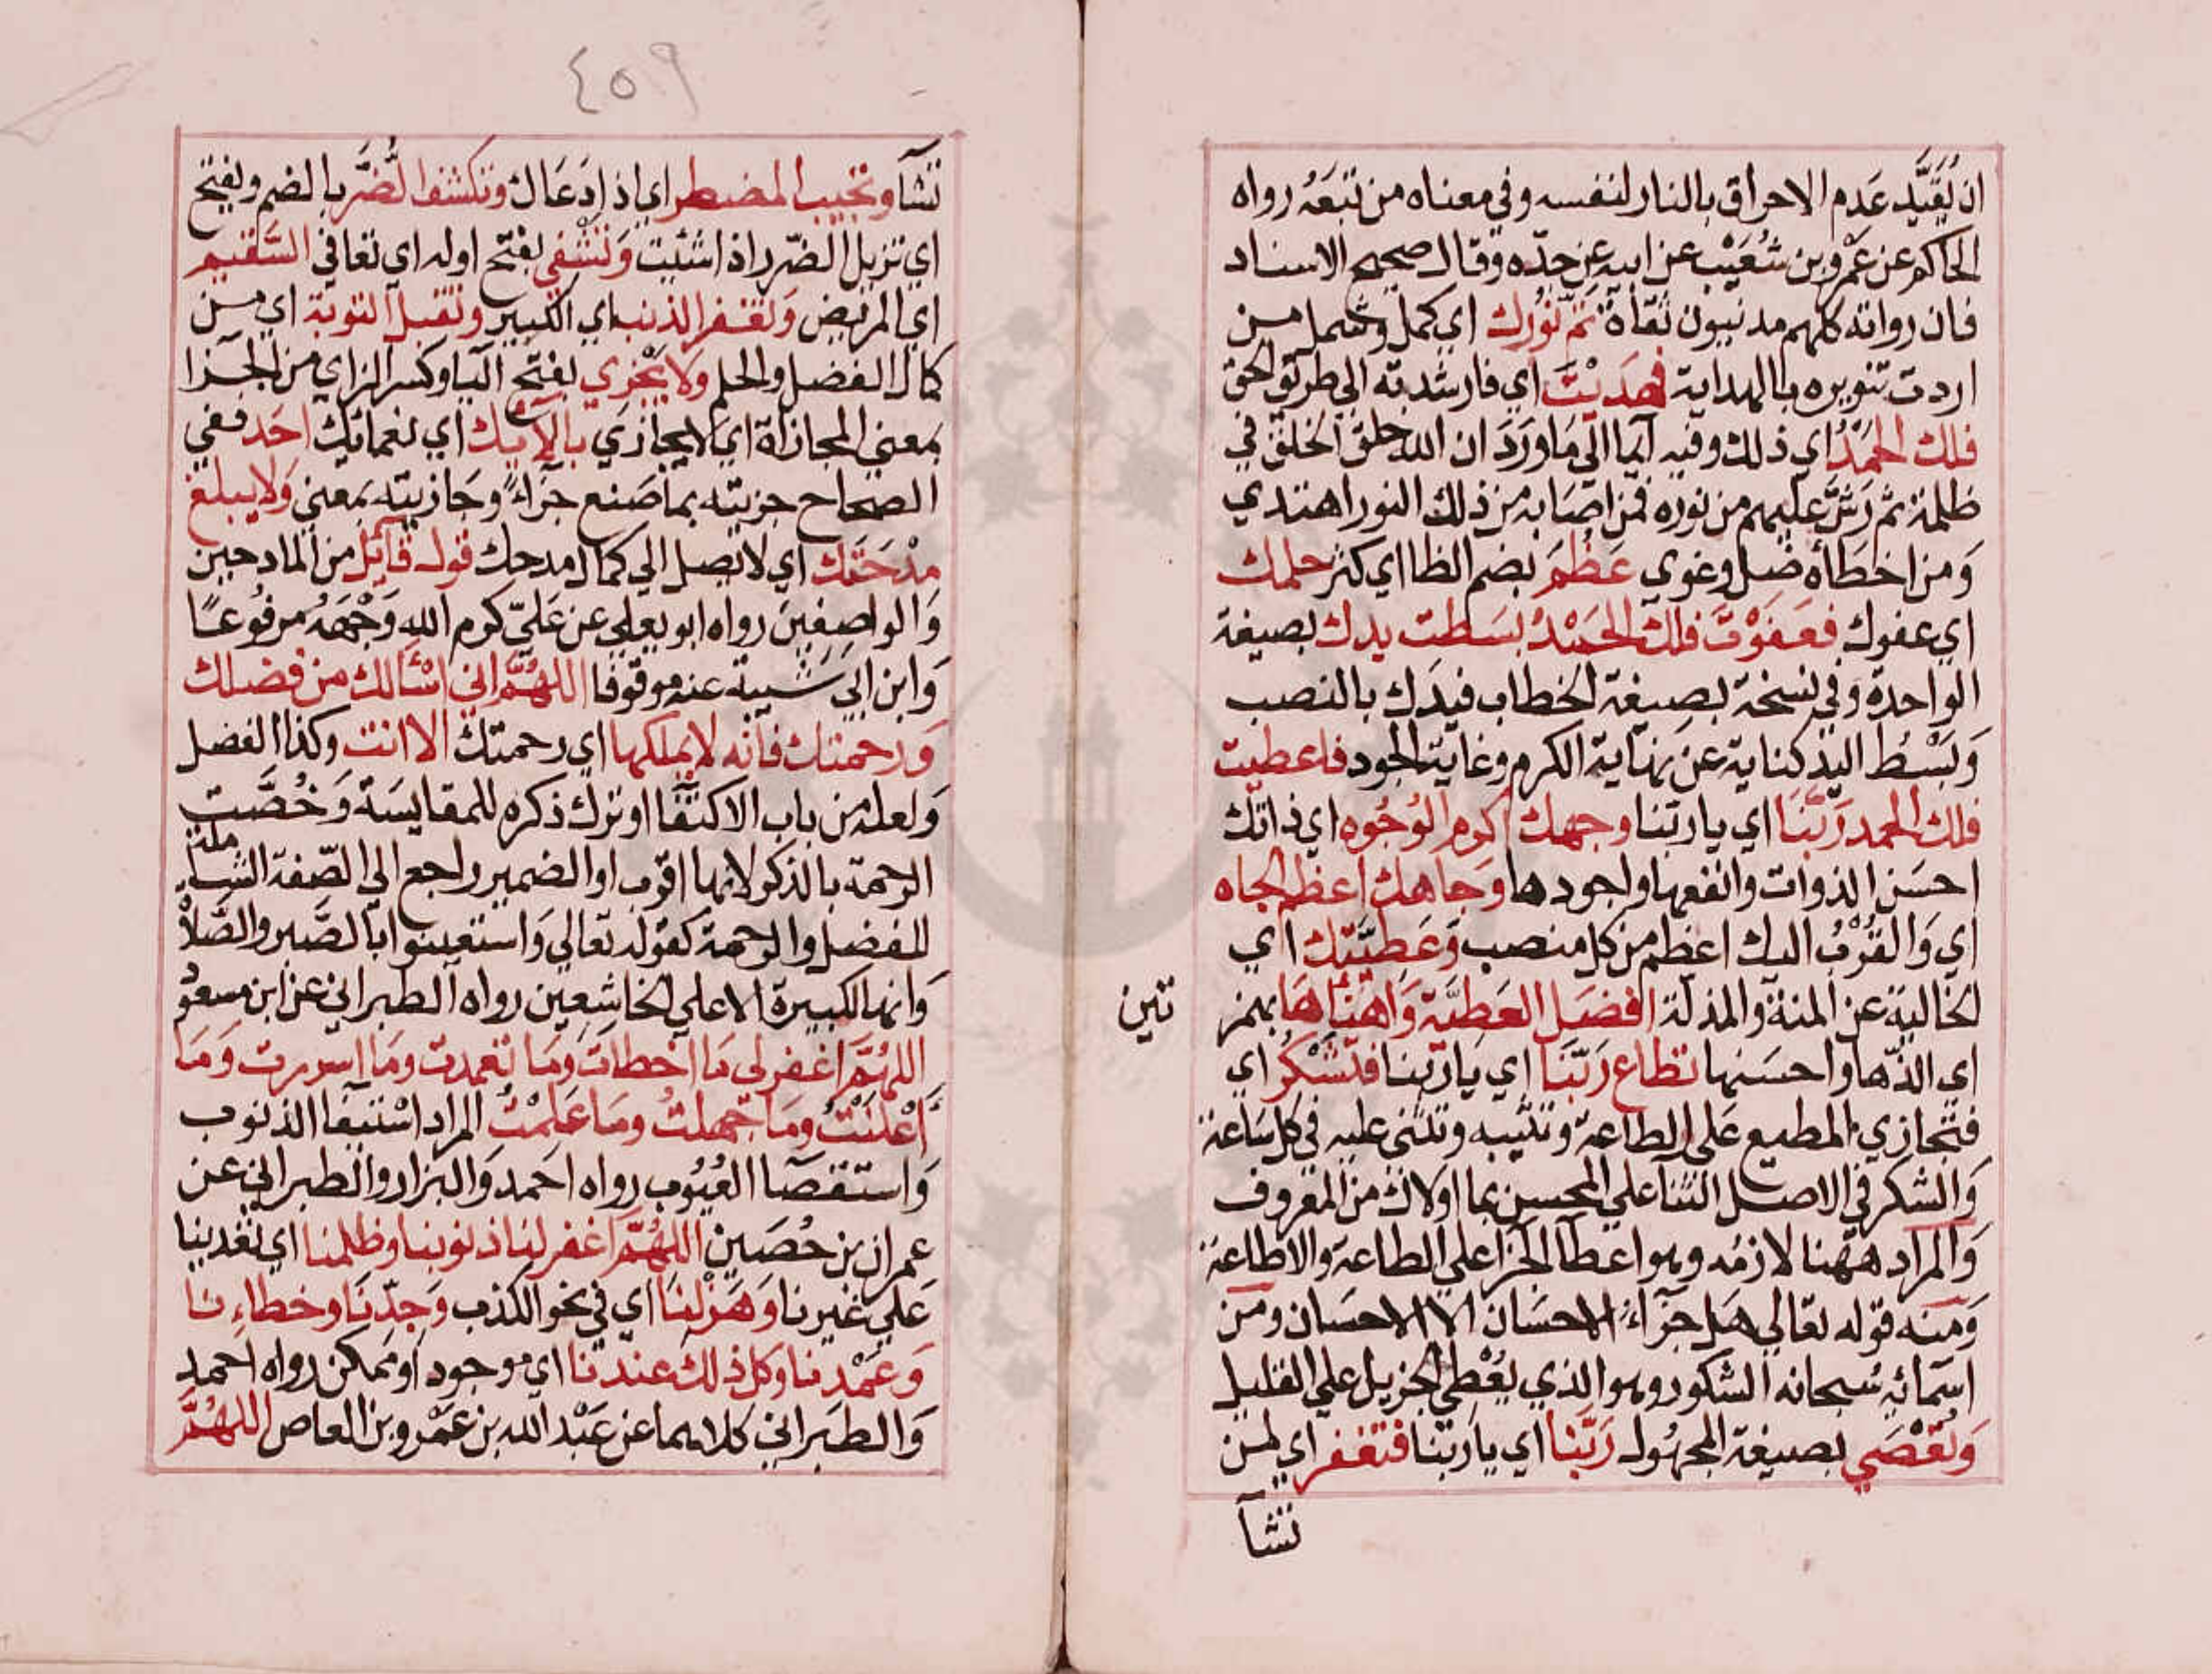 ان يُقَيَّد عَدم الاحراق بالنار لنفسه وفي معناه من تبعَهُ رواه
الحاكم عن عَمْرو بن شُعَيْب عن ابيه عن جدّه وقال صحيح الاسناد
فان رواته كلهم مدنيون ثقاة تمّ نُورك اي كمل وشمل من
اردت تنويره بالهداية فهَدَيْتَ اي فارشدته الي طريق الحق
فلك الحَمْدُ اي ذلك وفيه ايما الي مَا وَرَدَ ان الله خلق الخلق في
ظلمة ثم رَشَّ عليهم من نوره فمن اصَابه من ذلك النور اهتدي
وَمن اخطَأه ضل وغوي عَظُمَ بضم الظا اي كثر حلمك
اي عفوك فعَفَوْتَ فلك الحَمْدُ بسَطت يدك بصيغة
الواحدة وفي نسخة بصيغة الخطاب فيدَك بالنصب
وَبَسْطُ اليد كناية عن نهاية الكرم وغاية الجود فاعطيت
فلك الحمد رَبَّنَا اي يا ربّنا وجهك اكرم الوُجُوه اي ذاتك
احسَن الذوات وانفعها واجودها وَجَاهك اعظم الجاه
اي وَالقُرْبُ اليك اعظم من كل منصب وَعَطِيَّتك اي
الخالية عن المنة والمذلة افضَل العَطيَّة وَاهْنَأهَا بهمز
تين
اي الذّها واحسَنها تطاع رَبَّنَا اي يَا ربّنا فتَشْكُر اي
فتجازي المطيع عَلي الطاعة وتثيبه وتثني عليه في كل سَاعة
وَالشكر في الاصل الثنا علي المحسن بما اولاك من المعروف
وَالمراد هٰهنا لازمُه وهو اعطآ الجزا علي الطاعة والاطاعة
وَمنه قوله تعَالي هَل جزَآءُ الاحسَان الا الاحسَان ومن
اسمَائِه سُبحانه الشكور وهو الذي يُعْطِي الجزيل علي القليل
وَتُعْصَي بصيغة المجهُول رَبَّنا اي يا ربّنا فتغفر اي لمن
تشآ
٤٥٩
تشآ وتجيب المضطر اي اذا دَعَاك وتكشف الضُّرَّ بالضم ويفتح
اي تزيل الضّر اذا شئت وَتشْفي بفتح اوله اي تعافي السَّقيم
اي المريض وَتغفر الذنب اي الكبير وتقبل التوبة اي من
كمال الفضل والحلم وَلا يَجْزي بفتح اليا وكسر الزاي من الجزا
بمعني المجازاة اي لا يجازي بالآئك اي نعمائك احَد ففي
الصحاح جزيته بما صَنع جزَآءً وجَازيته بمعني وَلا يبلغ
مِدْحَتك اي لا يصل الي كمال مدحك قول قآئل من المادحين
وَالواصِفين رواه ابو يعلي عن عَليّ كرم الله وَجْهَهُ مرفوعًا
وَابن ابي شَيبة عنه موقوفا اللهُمَّ اني اسْأَلك من فضلك
وَرحمتك فانّه لا يملكها اي رحمتك الا انت وكذا الفضل
وَلعله من باب الاكتفآ او ترك ذكره للمقايسَة وَخُصَّت
الرحمة بالذكر لانها اقرب او الضمير راجع الي الصّفة الشاملة
للفضل والرحمة كقوله تعَالي وَاستعينوا بالصَّبر والصَّلاة
وَانها لكبيرة الا علي الخاشِعين رواه الطبراني عن ابن مسعُو
اللهُمَّ اغفِر لي مَا اخطات وَمَا تعمدت ومَا اسررت وَمَا
اَعْلَنْتُ ومَا جَهلتُ ومَا عَلمْتُ المراد اسْتيفا الذنوب
وَاستقصَآ العُيُوب رواه احمد وَالبزار والطبراني عن
عمران بن حُصَين اللهُمَّ اغفر لنا ذنوبنا وظلمنا اي تعَدينا
عَلي غيرنا وَهَزْلنَا اي في نحو الكذب وَجِدّنا وخطاءنا
وَعَمْدنا وكل ذلك عندنا اي موجود او ممكن رواه احمد
وَالطبراني كلاهما عن عَبْد الله بن عَمْرو بن العاص اللهُمَّ